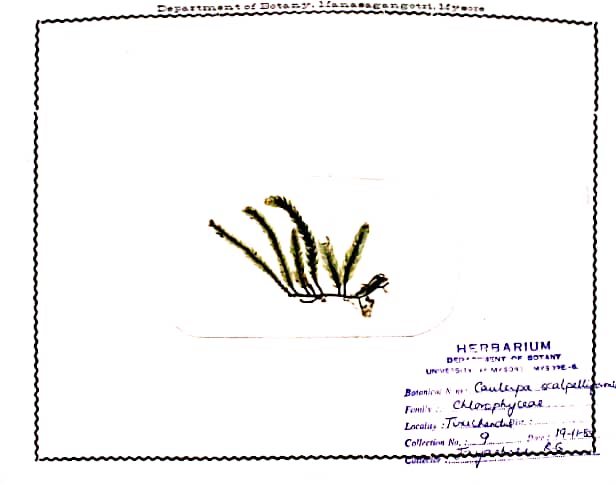 Department of Botany, Manasagangotri, Mysore
HERBARIUM
DEPARTMENT OF BOTANY
UNIVERSITY OF MYSORE MYSORE-6.
Botanical Name: Caulerpa scalpelliformis
Family: Chlorophyceae
Locality: Dist.:
Collection No.: 9 Date: 19-11-
Collector: